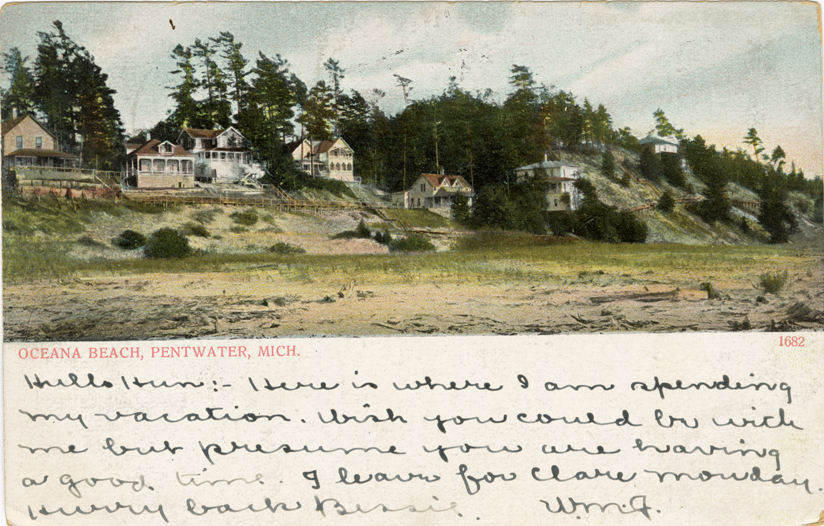 OCEANA BEACH, PENTWATER, MICH.
1682
Hello Hun:- Here is where I am spending
my vacation. Wish you could be with
me but presume you are having
a good time. I leave for Clare monday.
Hurry back Bessie. Wm.J.